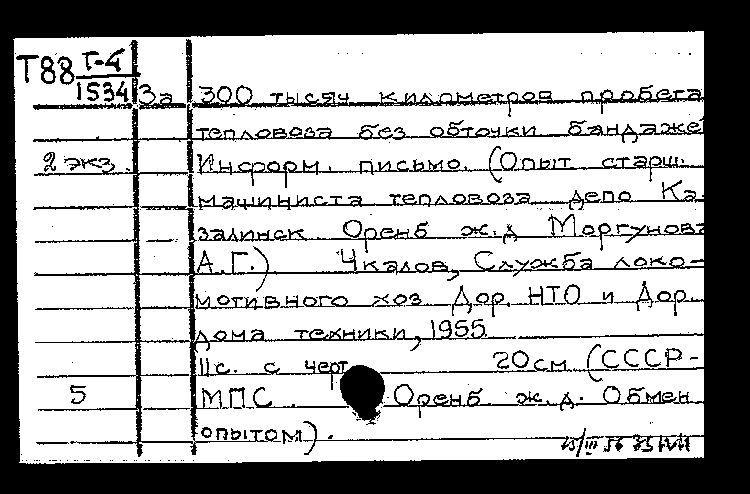 Т88 Т-4
1534 За 300 тысяч километров пробега
тепловоза без обточки бандаже
2 экз. Информ. письмо. (Опыт старш.
машиниста тепловоза депо Ка-
залинск Оренб ж.д Моргунова
А.Г.) Чкалов, Служба локо-
мотивного хоз. Дор. НТО и Дор.
дома техники, 1955
11с. с черт 20см (СССР-
5 МПС. Оренб ж.д. Обмен
опытом).